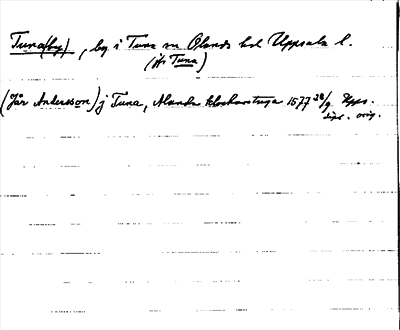 Tuna(by), by i Tuna sn Olands hd Uppsala l.
(jfr Tuna)
(Jär Andersson) j Tuna, Alunda klockarstuga 1577 28/9 Upps.
dipl. orig.